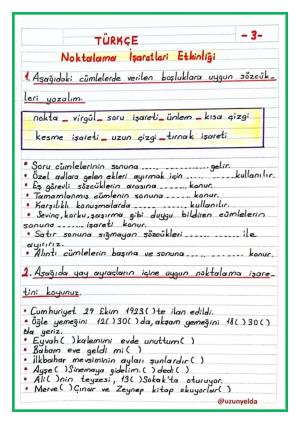 TÜRKÇE
-3-
Noktalama İşaretleri Etkinliği
1. Aşağıdaki cümlelerde verilen boşluklara uygun sözcük-
leri yazalım.
nokta _ virgül _ soru işareti _ ünlem _ kısa çizgi
kesme işareti _ uzun çizgi _ tırnak işareti
• Soru cümlelerinin sonuna ................ gelir.
• Özel adlara gelen ekleri ayırmak için ............ kullanılır.
• Eş görevli sözcüklerin arasına ............ konur.
• Tamamlanmış cümlenin sonuna ............ konur.
• Karşılıklı konuşmalarda ................ kullanılır.
• Sevinç, korku, şaşırma gibi duygu bildiren cümlelerin
sonuna ............ işareti konur.
• Satır sonuna sığmayan sözcükleri ............ ile
ayırırız.
• Alıntı cümlelerin başına ve sonuna ............ konur.
2. Aşağıda yay ayraçların içine uygun noktalama işare-
tini koyunuz.
• Cumhuriyet 29 Ekim 1923( )te ilan edildi.
• Öğle yemeğini 12( )30( )da, akşam yemeğini 18( )30( )
da yeriz.
• Eyvah( ) kalemimi evde unuttum( )
• Babam eve geldi mi( )
• İlkbahar mevsiminin ayları şunlardır( )
• Ayşe( ) Sinemaya gidelim.( ) dedi( )
• Ali( )nin teyzesi, 13( ) Sokak'ta oturuyor.
• Merve( ) Çınar ve Zeynep kitap okuyorlar( )
@uzunyelda